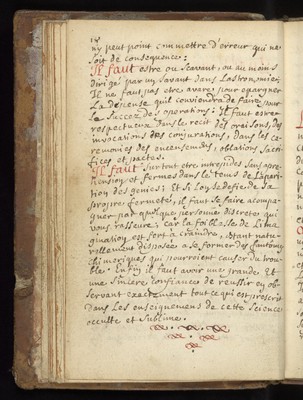 18
ny peut point commettre d'erreur qui ne
soit de consequence:
Il faut estre ou scavant, ou au moins
dirigé par un savant dans Lastronomie;
Il ne faut pas etre avare, pour epargner
La depense quil conviendra de faire, pour
Le succez des operations: Il faut estre
respectueux dans le recit des oraisons, des
invocations des conjurations, dans les ce-
remonies des encensemens, oblations sacri-
fices et pactes.
Il faut sur tout etre intrepide sans apre-
hension et fermes dans le tems de L'apari-
tion des genies; Et si Lon se defie de sa
propre fermeté, il faut se faire acompa-
gner par quelque personne discrete qui
vous rasseure; Car la foiblesse de L'ima-
gination est fort à craindre, etant natu-
rellement disposée a se former des fantômes
chimeriques qui pourroient causer du trou-
ble. Enfin il faut avoir une grande, Et
une sincere confiance de reussir en ob-
servant exactement tout ce qui est prescrit
dans Les enseignemens de cette science
occulte et sublime.